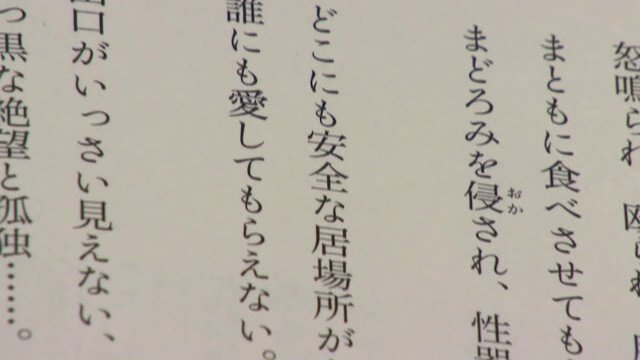 怒鳴られ、殴られ、
まともに食べさせても
まどろみを侵され、性器
おか
どこにも安全な居場所が
誰にも愛してもらえない。
出口がいっさい見えない、
っ黒な絶望と孤独……。